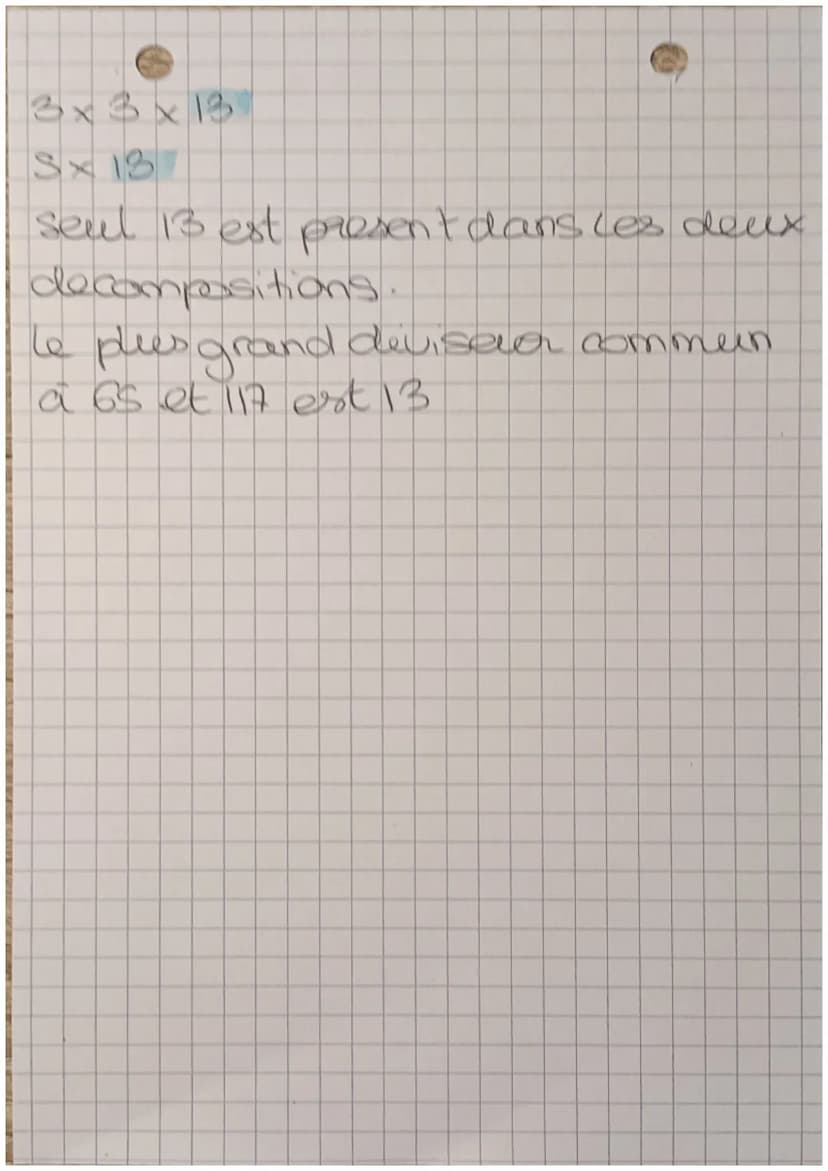 3 x 3 x 13
5 x 13
seul 13 est present dans les deux
decompositions.
le plus grand diviseur commun
à 65 et 117 est 13